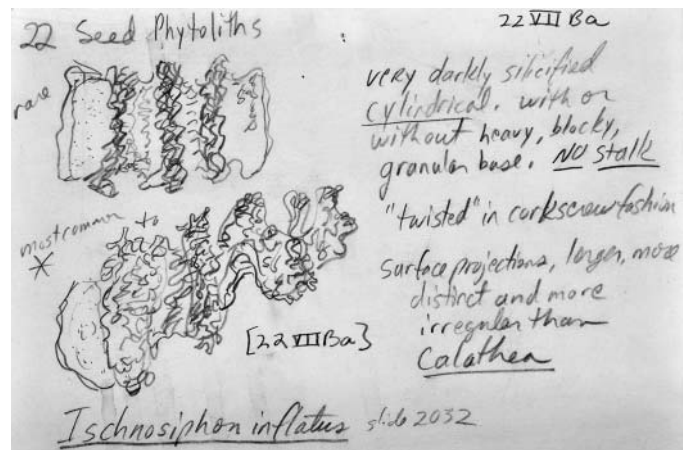 22 Seed Phytoliths
22 VII Ba
rare
very darkly silicified
cylindrical. with or
without heavy, blocky,
granular base. NO Stalk
"twisted" in corkscrew fashion
most common to
*
surface projections, longer, more
distinct and more
irregular than
Calathea
[22 VII Ba]
Ischnosiphon inflatus slide 2032